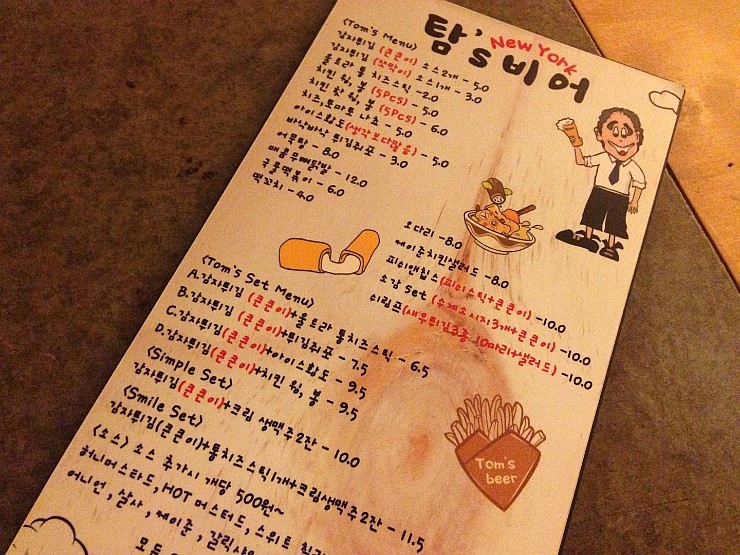 탐's 비어
New York
<Tom's Menu>
감자튀김 (큰큰이) 소스2개 - 5.0
감자튀김 (쪼끄이) 소스1개 - 3.0
울트라 통 치즈스틱 - 2.0
치킨 윙, 봉 (5PCS) - 5.0
치킨 핫 윙, 봉 (5PCS) - 6.0
치즈,토마토 나쵸 - 5.0
아이스황도(생각보다많음) - 5.0
바삭바삭 튀김쥐포 - 3.0
어묵탕 - 8.0
매콤무뼈닭발 - 12.0
국물떡볶이 - 6.0
떡꼬치 - 4.0
오다리 - 8.0
케이준치킨샐러드 - 8.0
피쉬앤칩스(피쉬스틱+큰큰이) - 10.0
소감 Set (수제소시지3개+큰큰이) - 10.0
쉬림프(새우튀김3종 10마리+샐러드) - 10.0
<Tom's Set Menu>
A.감자튀김 (큰큰이)+울트라 통치즈스틱 - 6.5
B.감자튀김 (큰큰이)+튀김쥐포 - 7.5
C.감자튀김(큰큰이)+아이스황도 - 9.5
D.감자튀김(큰큰이)+치킨 윙, 봉 - 9.5
<Simple Set>
감자튀김(큰큰이)+크림 생맥주2잔 - 10.0
<Smile Set>
감자튀김(큰큰이)+통치즈스틱1개+크림생맥주2잔 - 11.5
<소스> 소스 추가시 개당 500원~
허니머스타드, HOT 머스터드, 스위트
어니언, 살사, 케이준, 갈릭
모든
Tom's
beer